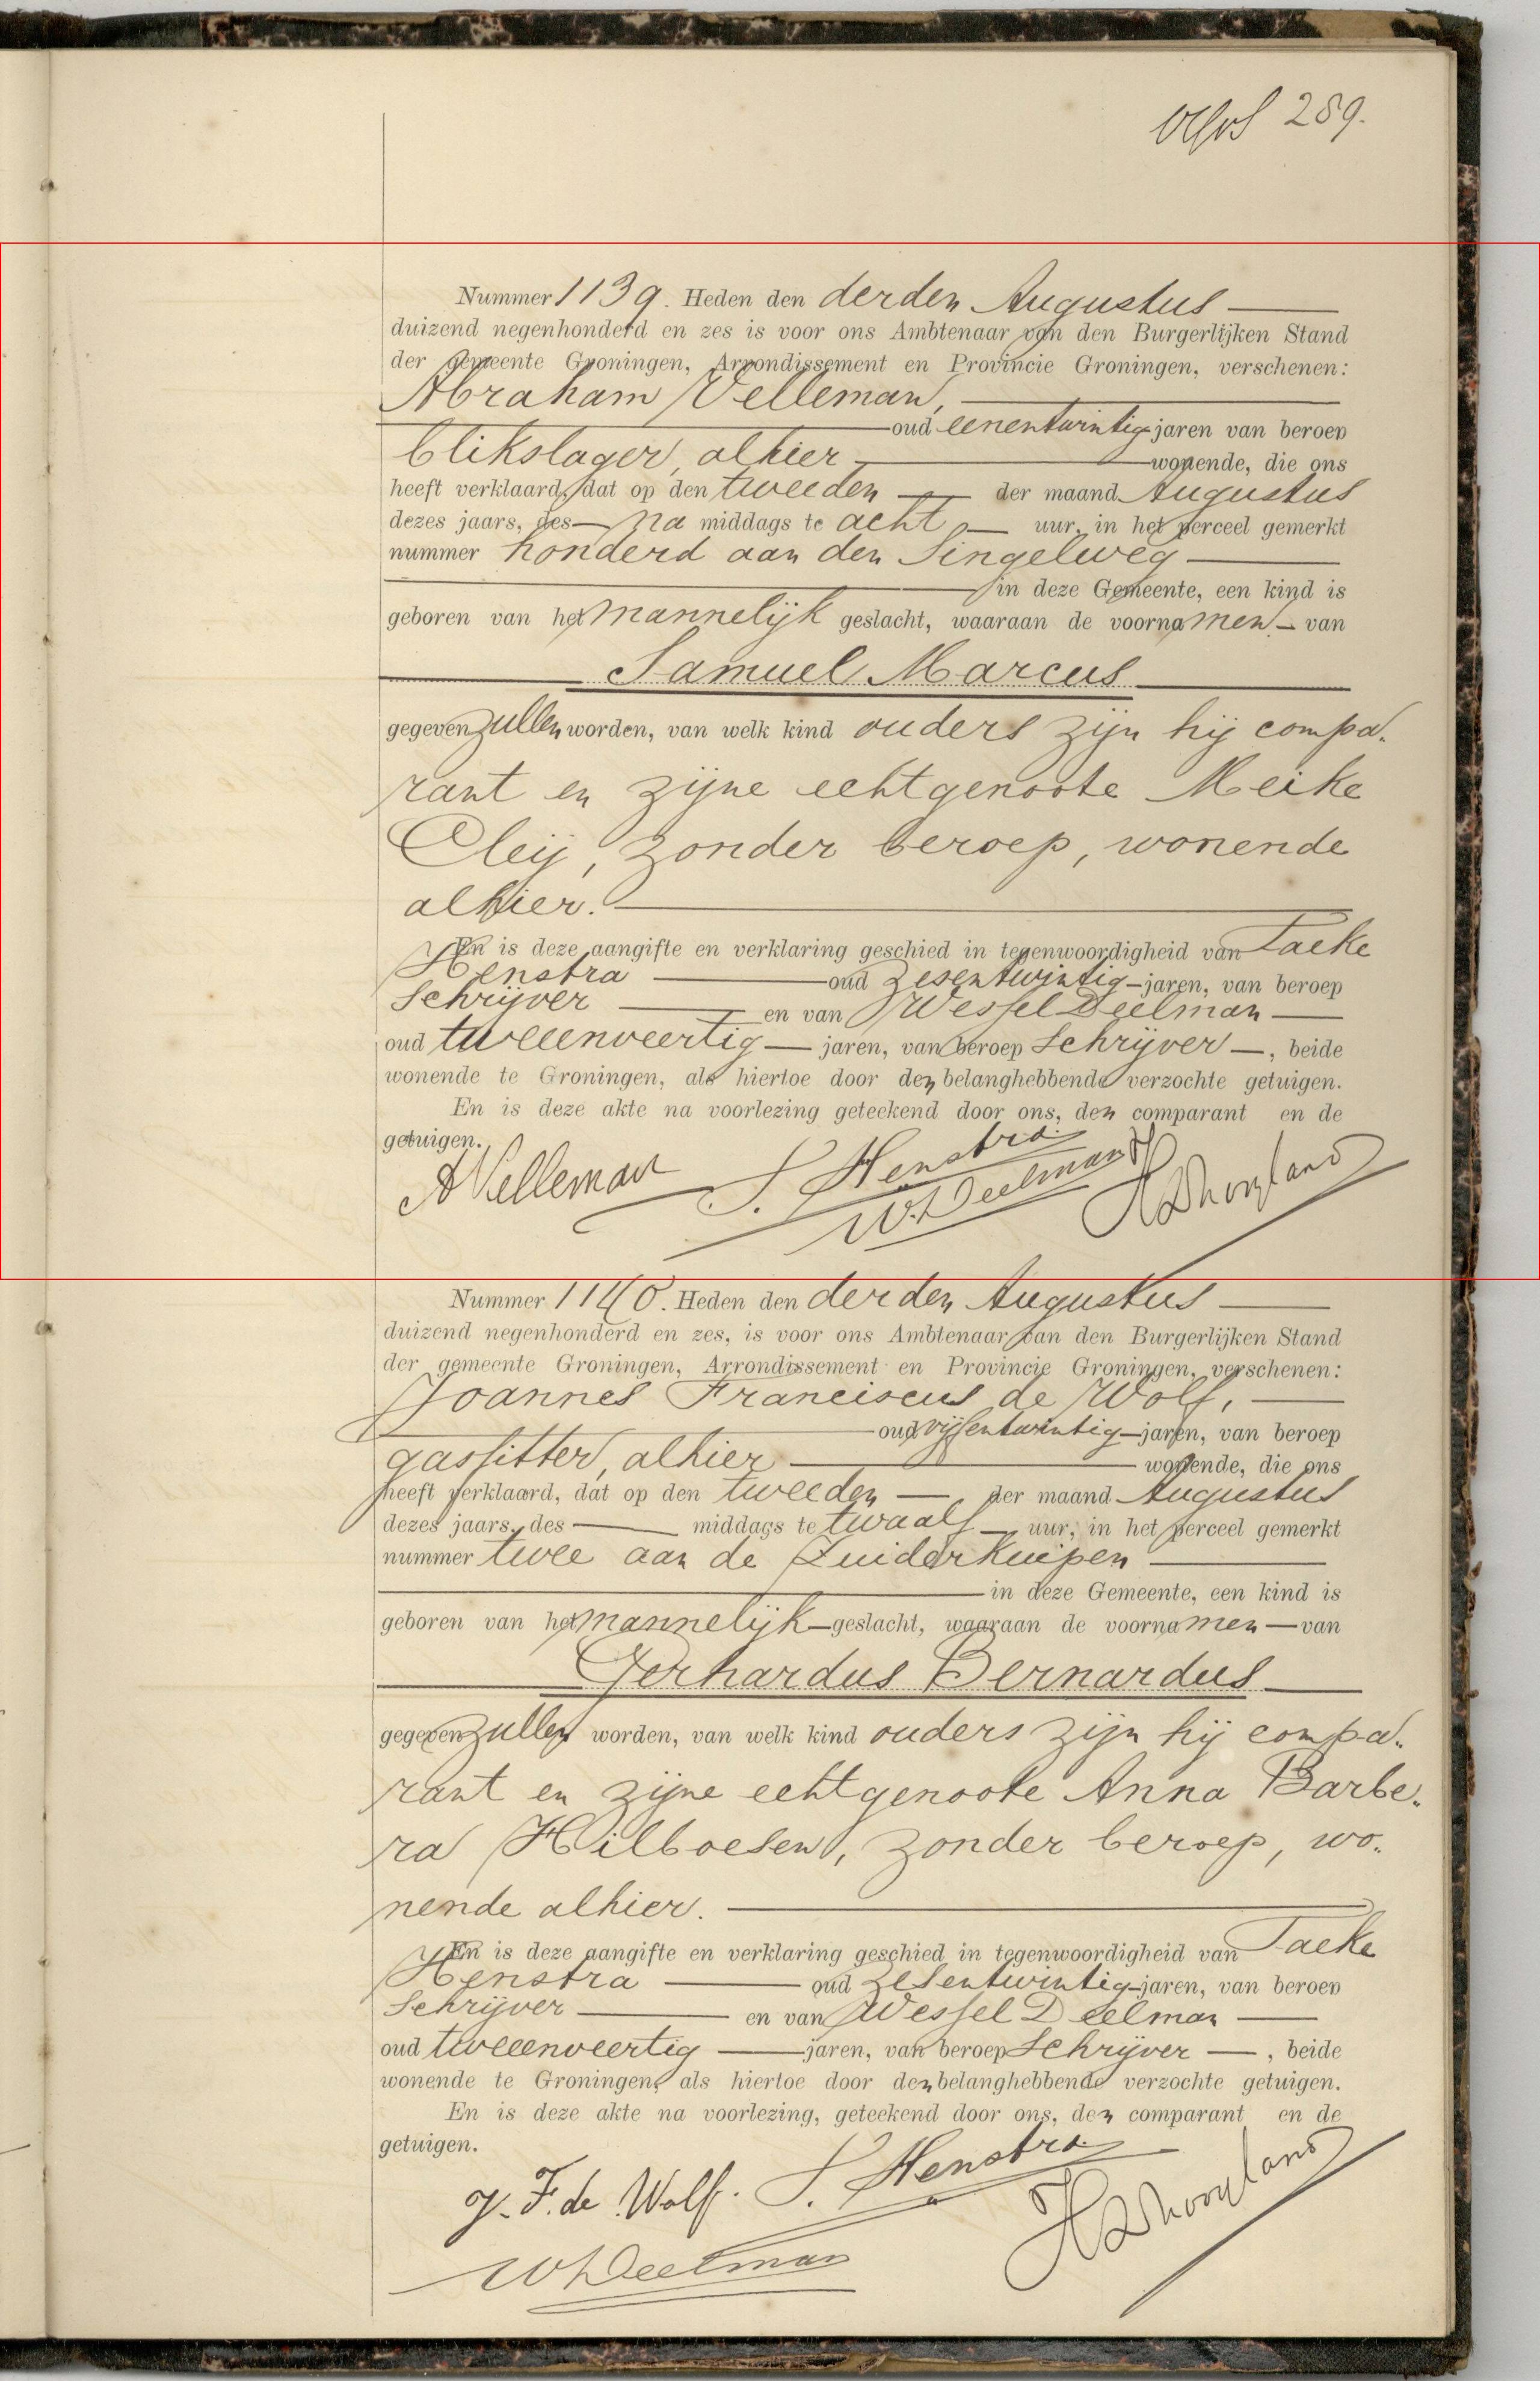 289.
Nummer 1139. Heden den derden Augustus
duizend negenhonderd en zes is voor ons Ambtenaar van den Burgerlijken Stand
der gemeente Groningen, Arrondissement en Provincie Groningen, verschenen:
Abraham Velleman,
oud eenentwintig jaren van beroep
blikslager, alhier wonende, die ons
heeft verklaard, dat op den tweeden der maand Augustus
dezes jaars, des na middags te acht uur, in het perceel gemerkt
nummer honderd aan den Singelweg
in deze Gemeente, een kind is
geboren van het mannelijk geslacht, waaraan de voornamen van
Samuel Marcus
gegeven zullen worden, van welk kind ouders zijn hij compa„
rant en zijne echtgenoote Meike
Cleij, zonder beroep, wonende
alhier.
En is deze aangifte en verklaring geschied in tegenwoordigheid van Taeke
Henstra oud zesentwintig jaren, van beroep
schrijver en van Wessel Deelman
oud tweeenveertig jaren, van beroep schrijver, beide
wonende te Groningen, als hiertoe door den belanghebbende verzochte getuigen.
En is deze akte na voorlezing geteekend door ons, den comparant en de
getuigen.
A Velleman T. Henstra
W. Deelman
Nummer 1140. Heden den derden Augustus
duizend negenhonderd en zes, is voor ons Ambtenaar van den Burgerlijken Stand
der gemeente Groningen, Arrondissement en Provincie Groningen, verschenen:
Joannes Franciscus de Wolf,
oud vijfentwintig jaren, van beroep
gasfitter, alhier wonende, die ons
heeft verklaard, dat op den tweeden der maand Augustus
dezes jaars, des middags te twaalf uur, in het perceel gemerkt
nummer twee aan de Zuiderkuipen
in deze Gemeente, een kind is
geboren van het mannelijk geslacht, waaraan de voornamen van
Gerhardus Bernardus
gegeven zullen worden, van welk kind ouders zijn hij compa„
rant en zijne echtgenoote Anna Barbe„
ra Hilboesen, zonder beroep, wo„
nende alhier.
En is deze aangifte en verklaring geschied in tegenwoordigheid van Taeke
Henstra oud zesentwintig jaren, van beroep
schrijver en van Wessel Deelman
oud tweeenveertig jaren, van beroep schrijver, beide
wonende te Groningen, als hiertoe door den belanghebbende verzochte getuigen.
En is deze akte na voorlezing, geteekend door ons, den comparant en de
getuigen.
J. F. de Wolf. T. Henstra
W Deelman